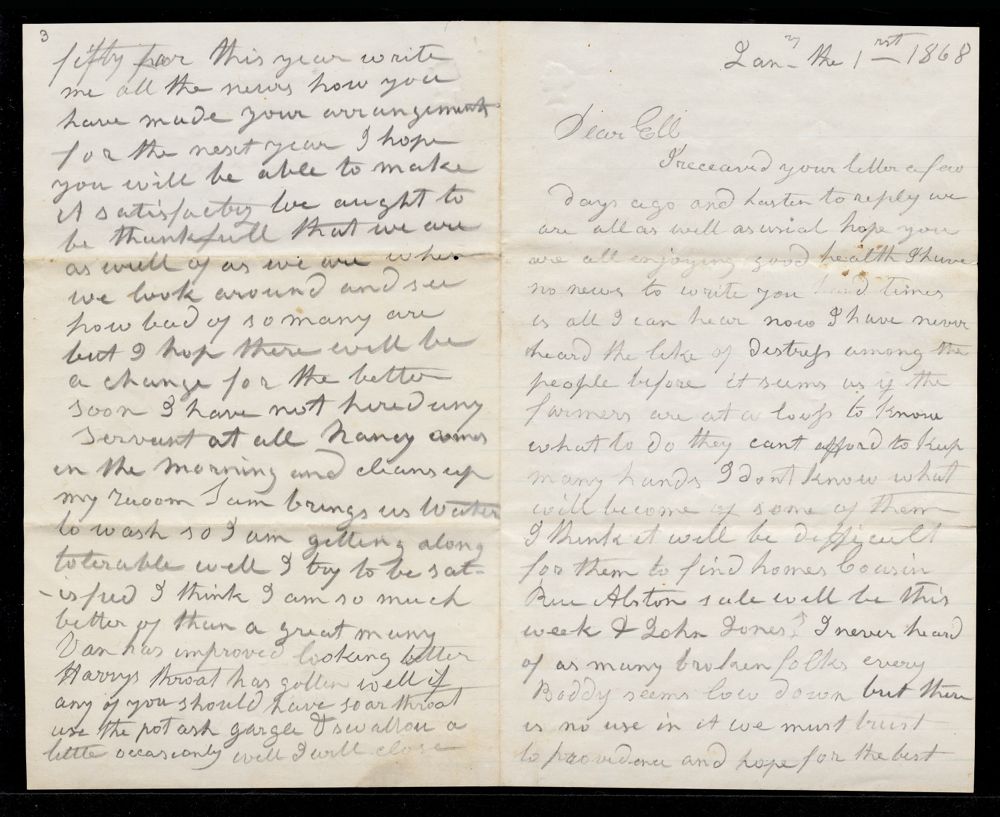 Jany the 1rst 1868
Dear Ell
I receaved your letter a few
days ago and hasten to reply we
are all as well as usial hope you
are all enjoying good health I have
no news to write you hard times
is all I can hear now I have never
heard the like of distress among the
people before it seems as if the
farmers are at a loss to know
what to do they cant afford to keep
many hands I dont know what
will become of some of them
I think it will be difficult
for them to find homes Cousin
Alston sale will be this
week & John Jones,s I never heard
of as many broken folks every
Boddy seems low down but there
is no use in it we must trust
to providence and hope for the best
3
fifty for this year write
me all the news how you
have made your arrangements
for the next year I hope
you will be able to make
it satisfactory we aught to
be thankfull that we are
as well of as we are when
we look around and see
how bad of so many are
but I hop there will be
a change for the better
soon I have not hired any
servant at all Nancy comes
in the morning and cleans up
my room Sam brings us water
to wash so I am getting along
tolerable well I try to be sat-
-isfied I think I am so much
better of than a great many
Van has improved looking better
Harrys throat has gotten well if
any of you should have soar throat
use the pot ash gargle & swallow a
little occasionly well I will close